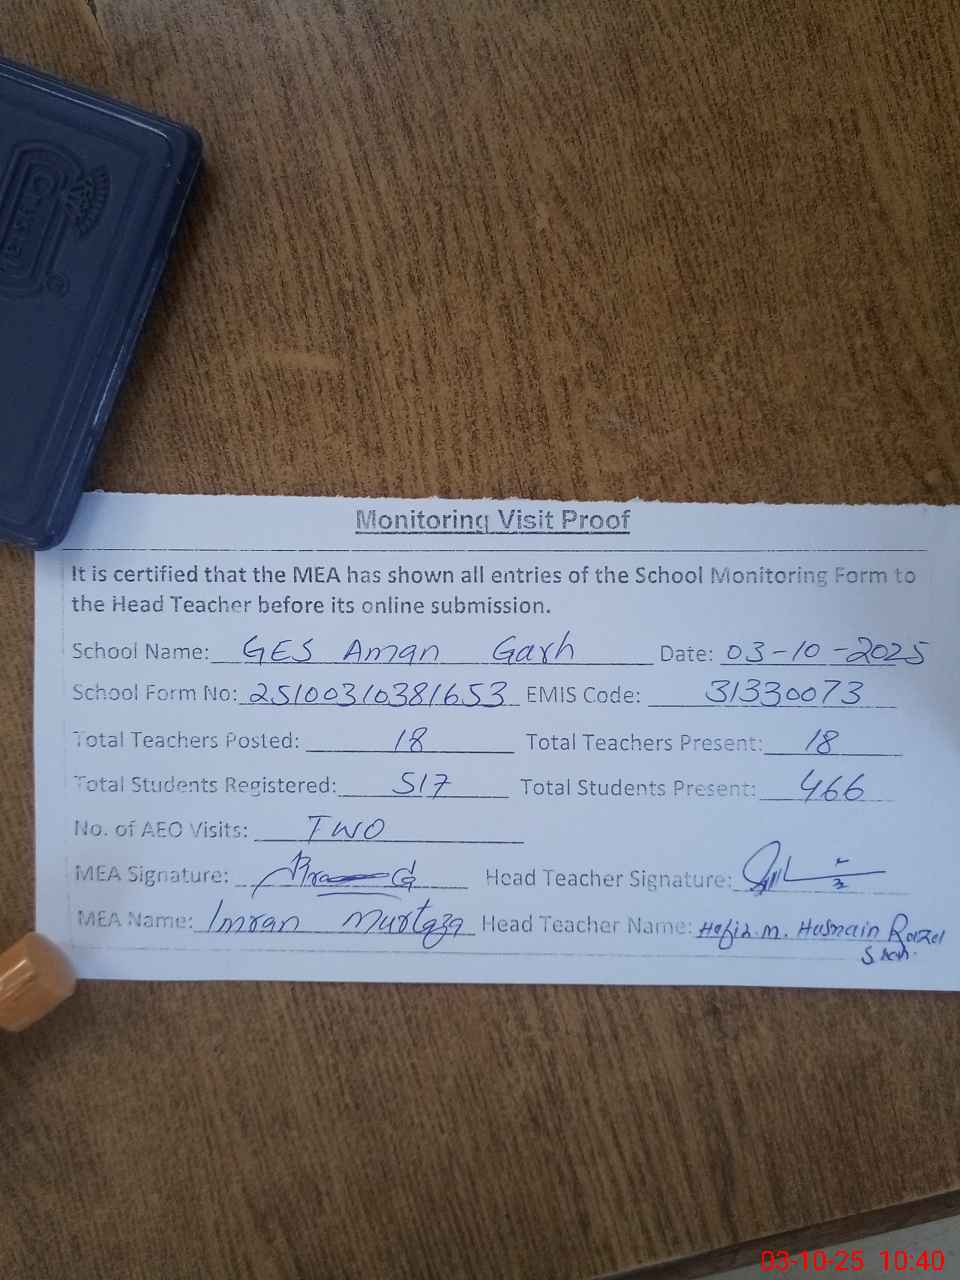 Crystal
®
Monitoring Visit Proof
It is certified that the MEA has shown all entries of the School Monitoring Form to
the Head Teacher before its online submission.
School Name: GES Aman Garh Date: 03-10-2025
School Form No: 25100310381653 EMIS Code: 31330073
Total Teachers Posted: 18 Total Teachers Present: 18
Total Students Registered: 517 Total Students Present: 466
No. of AEO Visits: TWO
MEA Signature: Head Teacher Signature:
MEA Name: Imran Murtaza Head Teacher Name: Hafiz. M. Husnain
Shah.
03-10-25 10:40